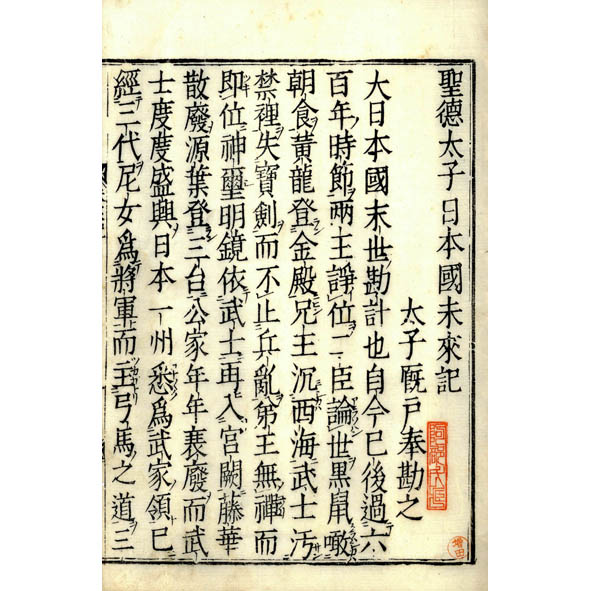 聖德太子日本國未來記
太子厩戸奉勘之
大日本國末世勘計也自今已後過六
百年時節兩主諍位二臣論世黒鼠噉
朝食黃龍登金殿兄主沉西海武士汚
禁裡失寶劍而不止兵亂弟王無禪而
即位神璽明鏡依武士再入宮闕藤華
散廢源葉登三台公家年年衰廢而武
士度度盛興日本一州悉爲武家領已
經三代尼女爲將軍而主弓馬之道三
増田